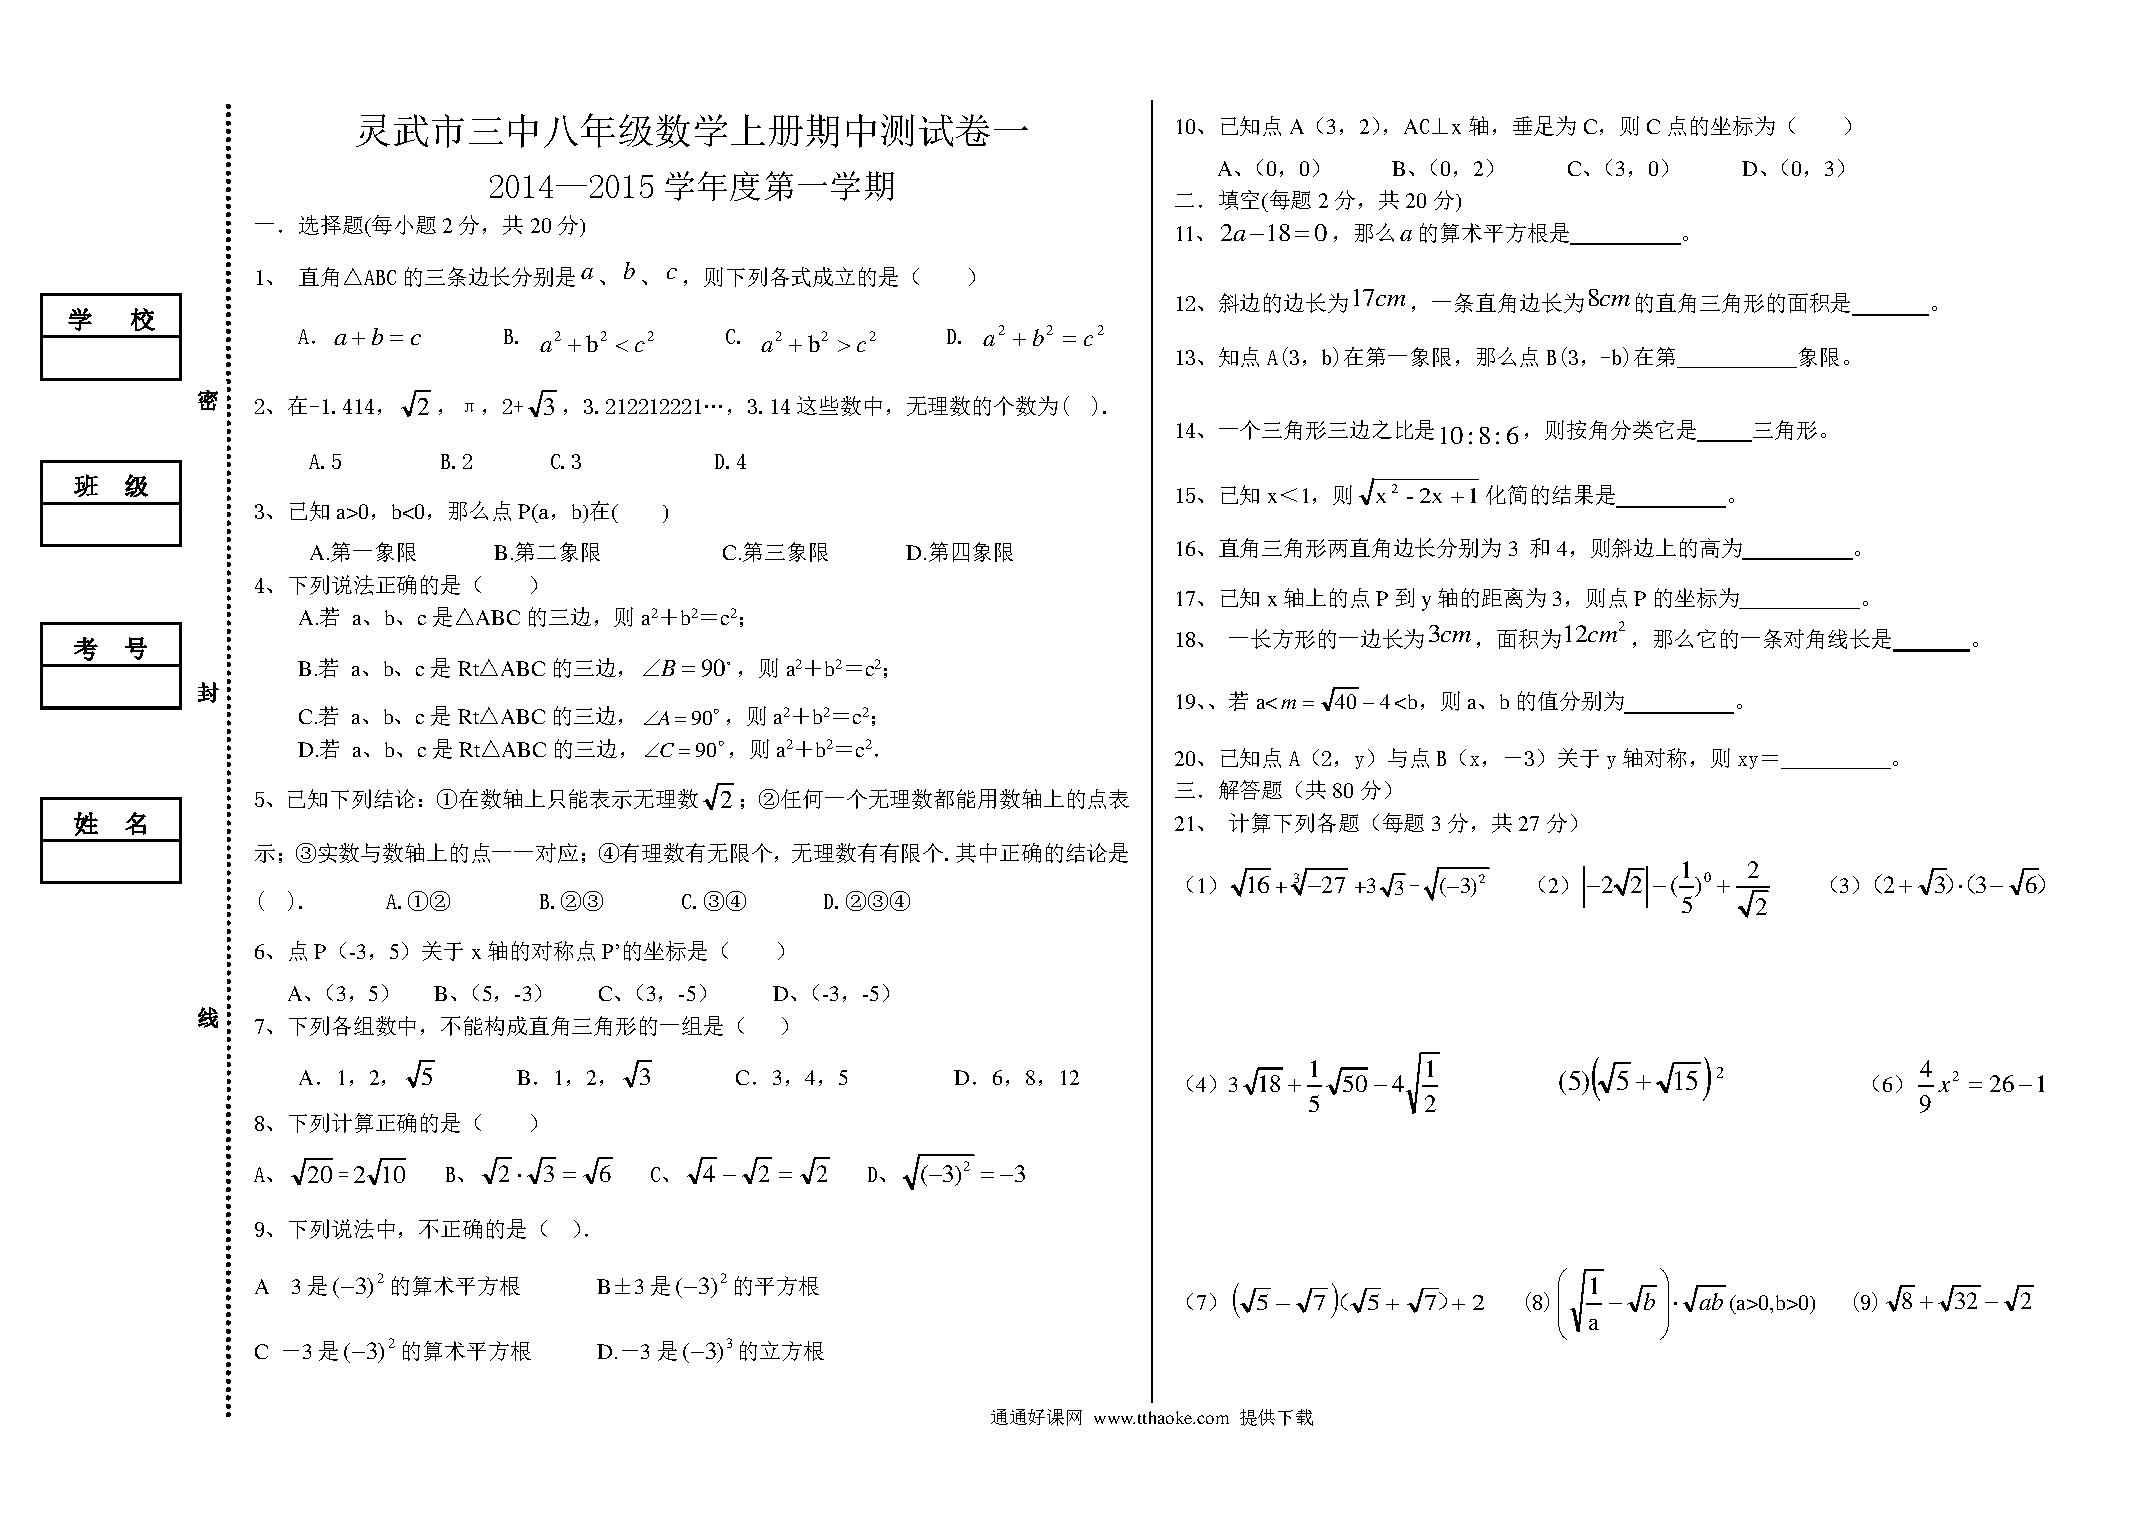 学 校
班 级
考 号
姓 名
密
封
线
灵武市三中八年级数学上册期中测试卷一
2014—2015学年度第一学期
一．选择题(每小题2分，共20分)
1、 直角△ABC的三条边长分别是a、b、c，则下列各式成立的是（ ）
A．a+b=c B. a²+b²<c² C. a²+b²>c² D. a²+b²=c²
2、在-1.414，√2，π，2+√3，3.212212221…，3.14这些数中，无理数的个数为( ).
A.5 B.2 C.3 D.4
3、已知a>0，b<0，那么点P(a，b)在( )
A.第一象限 B.第二象限 C.第三象限 D.第四象限
4、下列说法正确的是（ ）
A.若 a、b、c是△ABC的三边，则a²＋b²＝c²；
B.若 a、b、c是Rt△ABC的三边，∠B=90°，则a²＋b²＝c²；
C.若 a、b、c是Rt△ABC的三边，∠A=90°，则a²＋b²＝c²；
D.若 a、b、c是Rt△ABC的三边，∠C=90°，则a²＋b²＝c²．
5、已知下列结论：①在数轴上只能表示无理数√2；②任何一个无理数都能用数轴上的点表
示；③实数与数轴上的点一一对应；④有理数有无限个，无理数有有限个.其中正确的结论是
( ). A.①② B.②③ C.③④ D.②③④
6、点P（-3，5）关于x轴的对称点P’的坐标是（ ）
A、（3，5） B、（5，-3） C、（3，-5） D、（-3，-5）
7、下列各组数中，不能构成直角三角形的一组是（ ）
A．1，2，√5 B．1，2，√3 C．3，4，5 D．6，8，12
8、下列计算正确的是（ ）
A、√20=2√10 B、√2·√3=√6 C、√4−√2=√2 D、√(−3)²=−3
9、下列说法中，不正确的是（ ）.
A 3是(−3)²的算术平方根 B±3是(−3)²的平方根
C －3是(−3)²的算术平方根 D.－3是(−3)³的立方根
10、已知点A（3，2），AC⊥x轴，垂足为C，则C点的坐标为（ ）
A、（0，0） B、（0，2） C、（3，0） D、（0，3）
二．填空(每题2分，共20分)
11、2a−18=0，那么a的算术平方根是__________。
12、斜边的边长为17cm，一条直角边长为8cm的直角三角形的面积是_______。
13、知点A(3，b)在第一象限，那么点B(3，-b)在第___________象限。
14、一个三角形三边之比是10:8:6，则按角分类它是_____三角形。
15、已知x＜1，则√(x²-2x+1)化简的结果是__________。
16、直角三角形两直角边长分别为3 和4，则斜边上的高为__________。
17、已知x轴上的点P到y轴的距离为3，则点P的坐标为___________。
18、 一长方形的一边长为3cm，面积为12cm²，那么它的一条对角线长是_______。
19、、若a<m=√40−4<b，则a、b的值分别为__________。
20、已知点A（2，y）与点B（x，－3）关于y轴对称，则xy＝__________。
三．解答题（共80分）
21、 计算下列各题（每题3分，共27分）
（1）√16+³√−27+3√3-√(−3)² （2）|−2√2|−(1/5)⁰+2/√2 （3）(2+√3)·(3−√6)
（4）3√18+1/5√50−4√(1/2) (5)(√5+√15)² （6）4/9x²=26−1
（7）(√5−√7)(√5+√7)+2 (8)(√(1/a)−√b)·√ab(a>0,b>0) (9)√8+√32−√2
通通好课网 www.tthaoke.com 提供下载